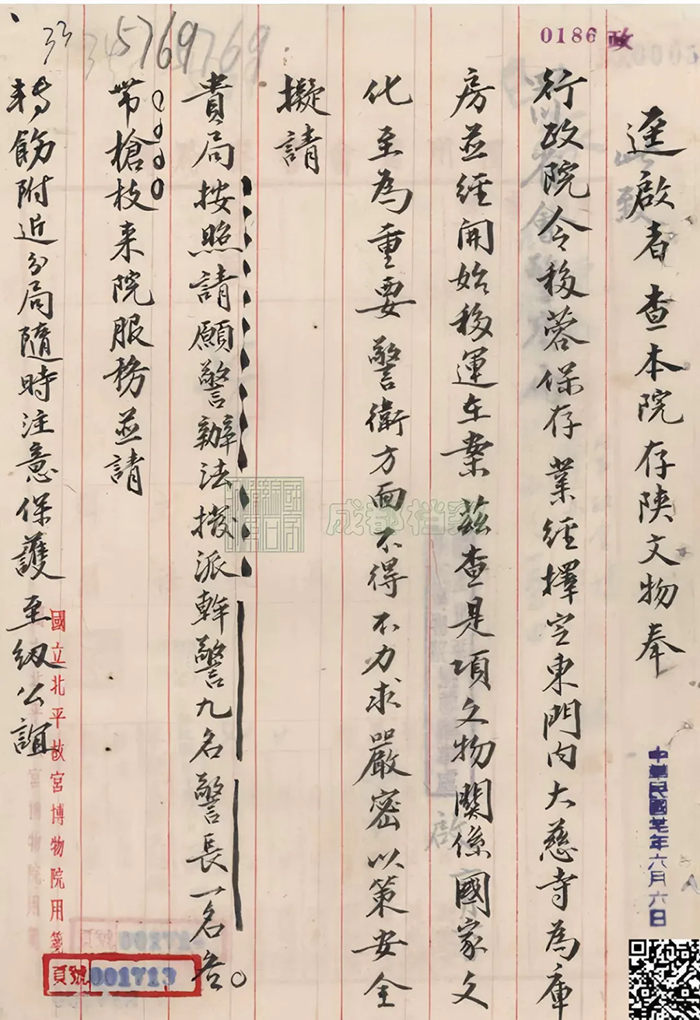 0186 政
33
5769
逕啟者查本院存陝文物奉
行政院令移蓉保存業經擇定東門內大慈寺為庫
房並經開始移運在案茲查是項文物關係國家文
化至為重要警衛方面不得不力求嚴密以策安全
擬請
貴局按照請願警辦法撥派幹警九名警長一名各
帶槍枝來院服務並請
轉飭附近分局隨時注意保護至紉公誼
中華民國廿七年六月六日
國立北平故宮博物院用箋
頁號 001713
成都档案